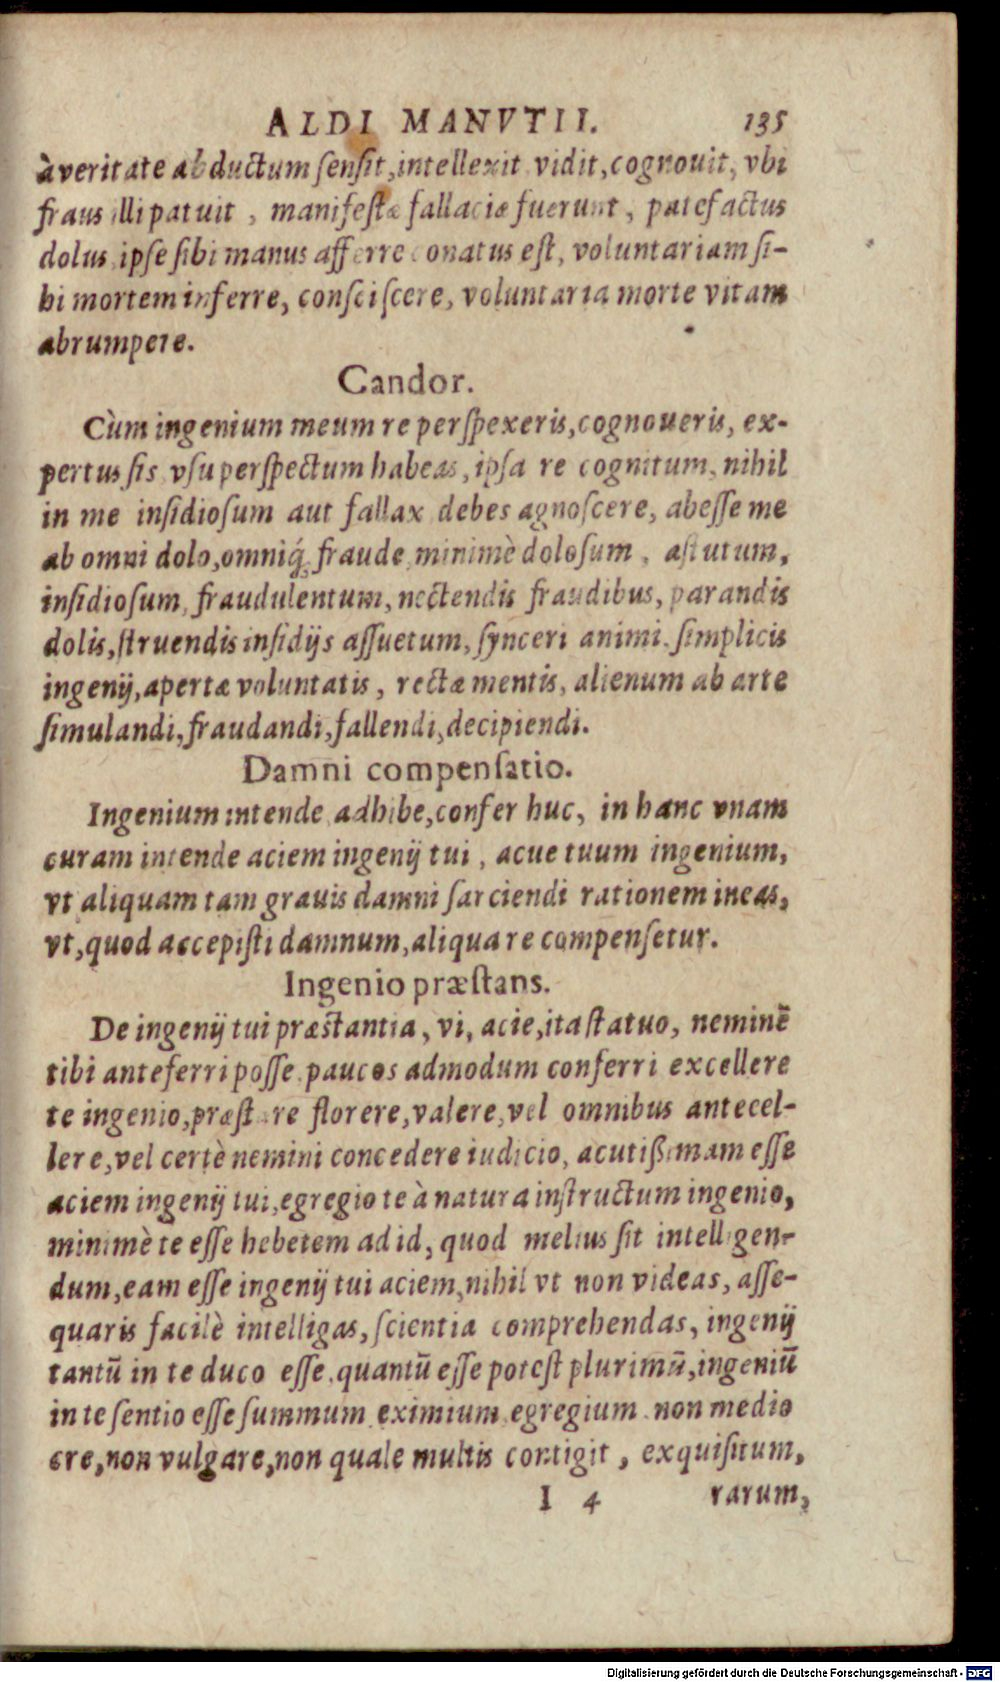 ALDI MANVTII. 135
à veritate abductum sensit, intellexit vidit, cognouit, vbi
fraus illi patuit, manifestæ fallaciæ fuerunt, patefactus
dolus, ipse sibi manus afferre conatus est, voluntariam si-
bi mortem inferre, consciscere, voluntaria morte vitam
abrumpere.
Candor.
Cùm ingenium meum re perspexeris, cognoueris, ex-
pertus sis vsu perspectum habeas, ipsa re cognitum, nihil
in me insidiosum aut fallax debes agnoscere, abesse me
ab omni dolo, omniq́; fraude, minimè dolosum, astutum,
insidiosum, fraudulentum, nectendis fraudibus, parandis
dolis, struendis insidijs assuetum, synceri animi, simplicis
ingenij, apertæ voluntatis, rectæ mentis, alienum ab arte
simulandi, fraudandi, fallendi, decipiendi.
Damni compensatio.
Ingenium intende, adhibe, confer huc, in hanc vnam
curam intende aciem ingenij tui, acue tuum ingenium,
vt aliquam tam grauis damni sarciendi rationem ineas,
vt, quod accepisti damnum, aliqua re compensetur.
Ingenio præstans.
De ingenij tui præstantia, vi, acie, ita statuo, neminē
tibi anteferri posse, paucos admodum conferri excellere
te ingenio, præstare florere, valere, vel omnibus antecel-
lere, vel certè nemini concedere iudicio, acutißimam esse
aciem ingenij tui, egregio te à natura instructum ingenio,
minimè te esse hebetem ad id, quod melius sit intelligen-
dum, eam esse ingenij tui aciem, nihil vt non videas, asse-
quaris facilè intelligas, scientia comprehendas, ingenij
tantū in te duco esse, quantū esse potest plurimū, ingeniū
in te sentio esse summum, eximium, egregium, non medio
cre, non vulgare, non quale multis contigit, exquisitum,
I 4 rarum,
Digitalisierung gefördert durch die Deutsche Forschungsgemeinschaft - DFG